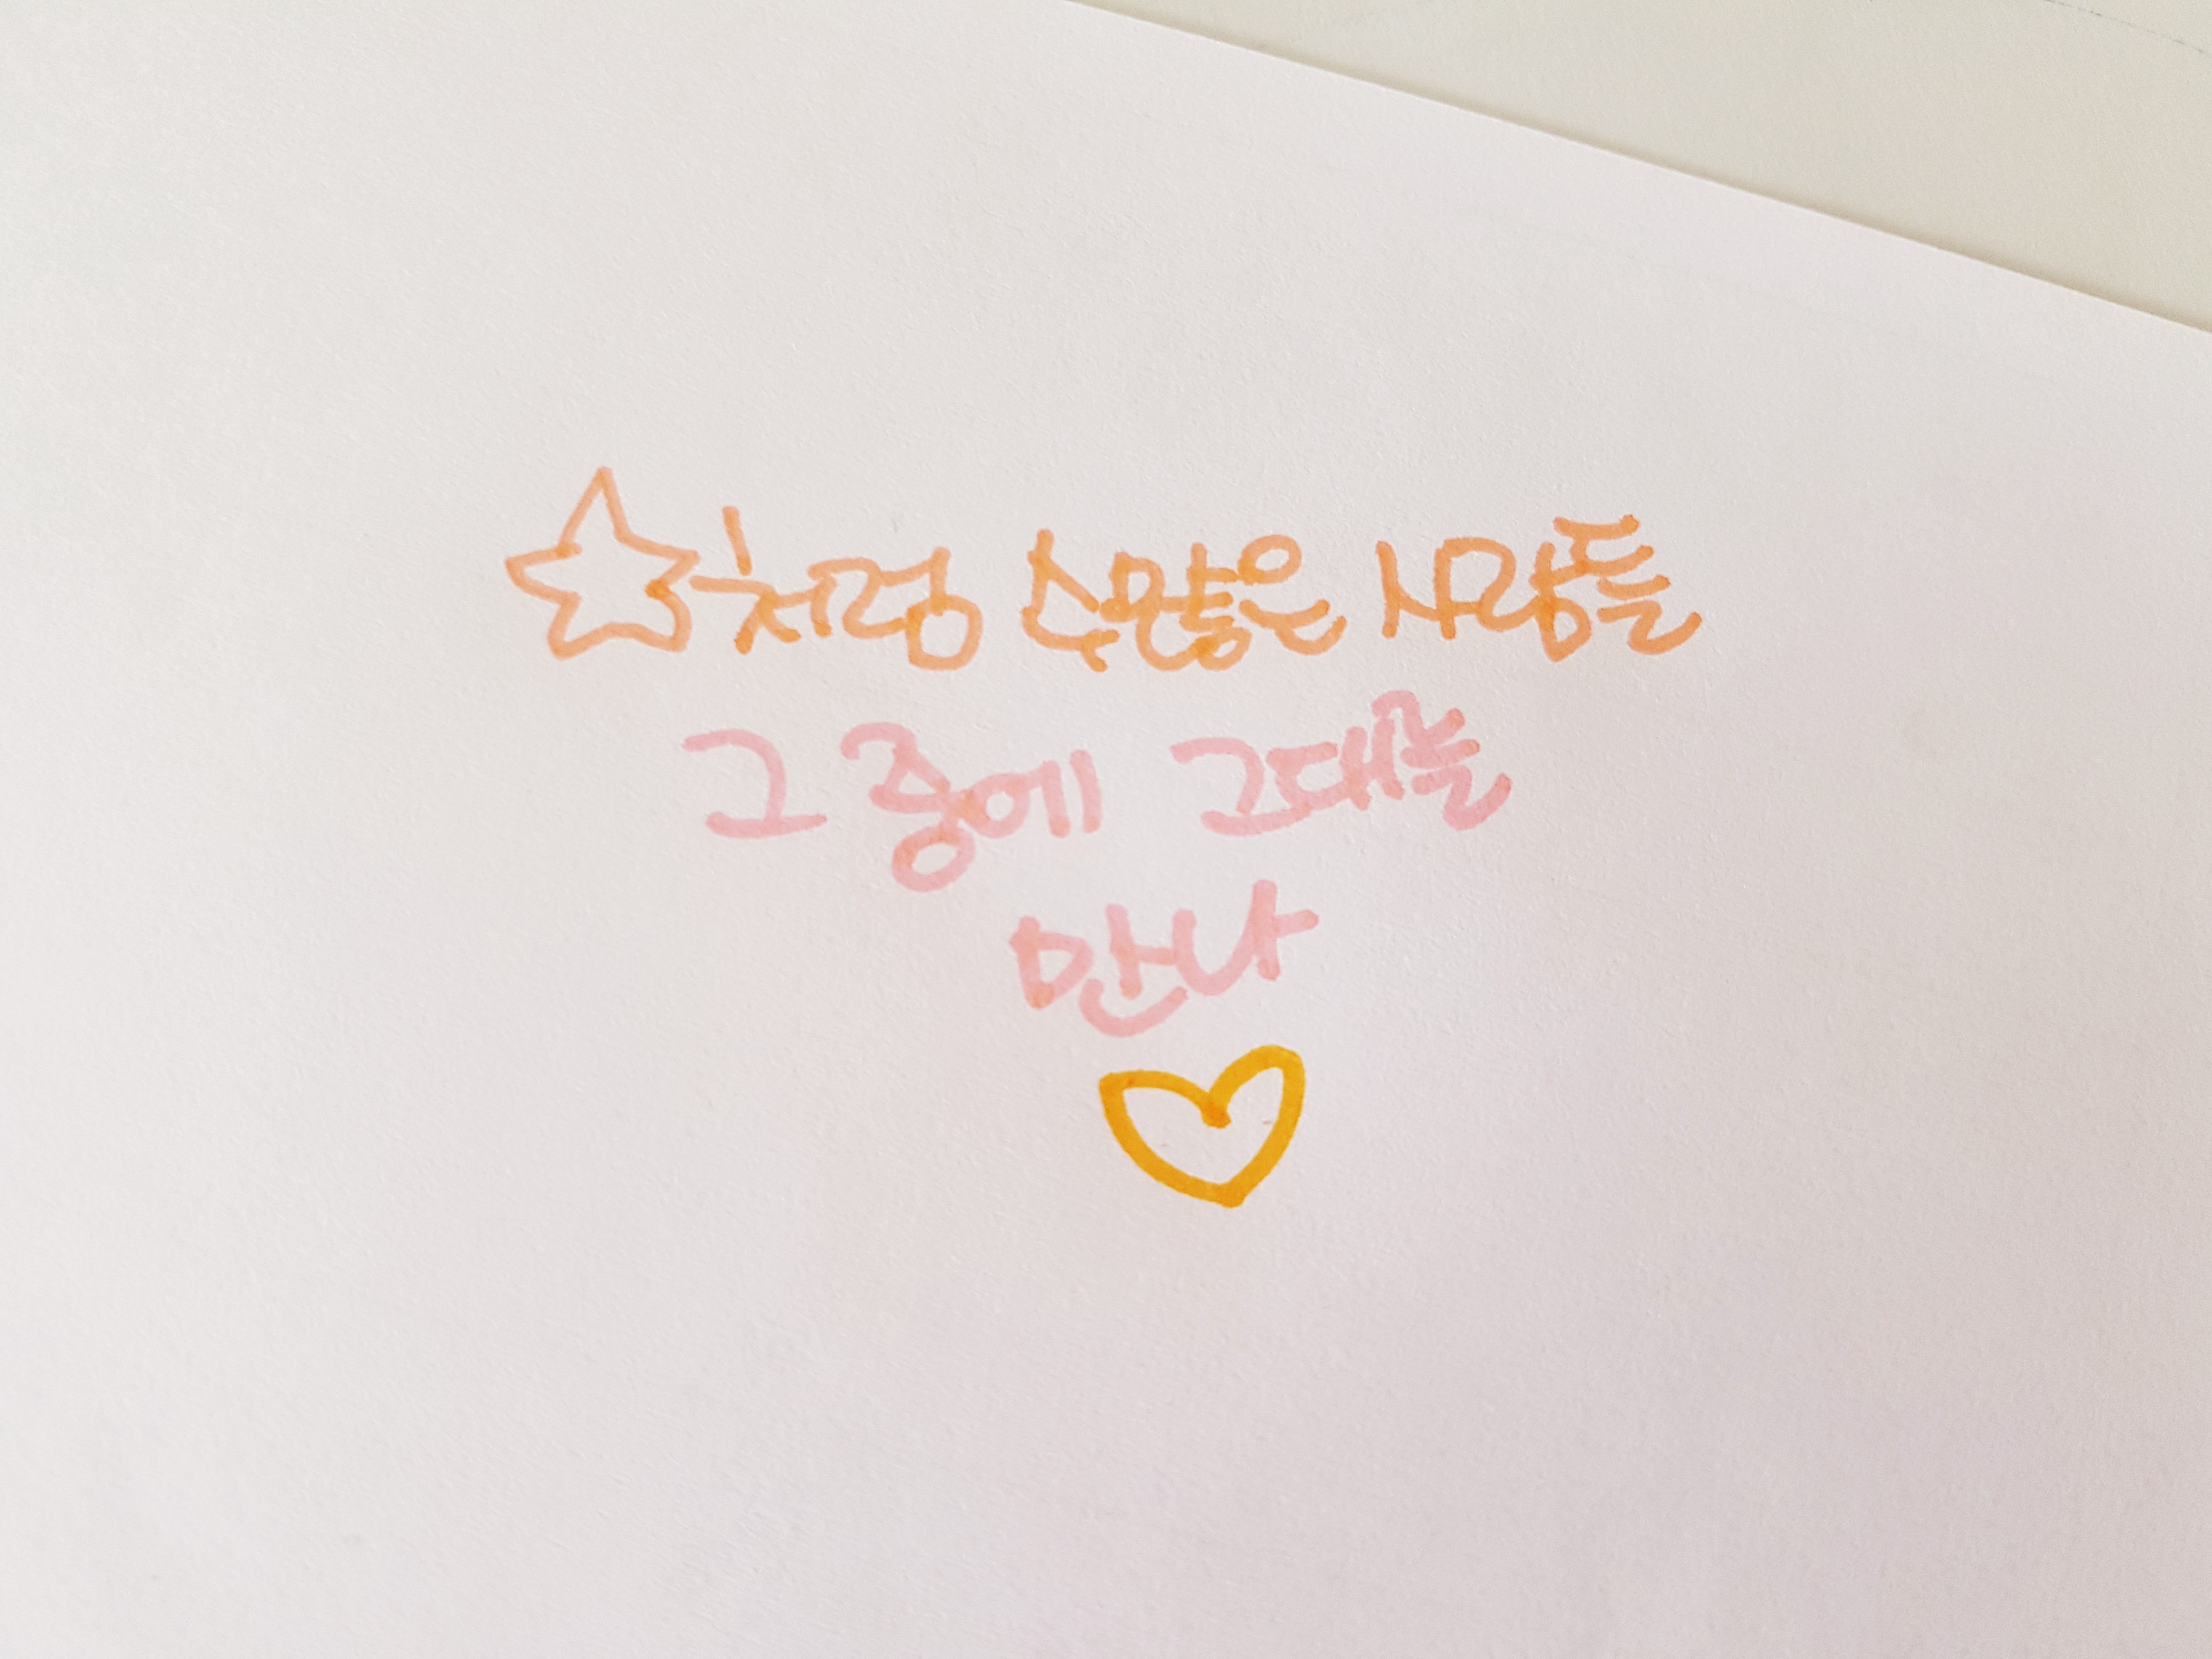 ☆처럼 수많은 사람들
그 중에 그대를
만나
♡